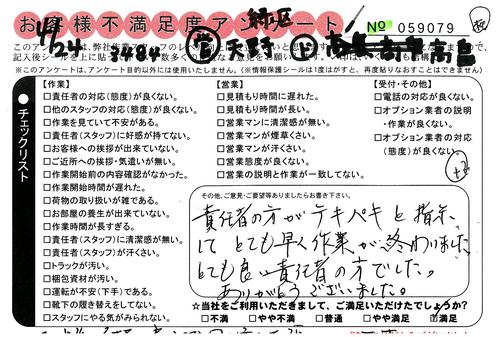 お客様不満足度アンケート
緑区
No 059079
4/24 3484 営 天野
高畠
このアンケートは、弊社作業スタッフのレベル向上
記入後シールを上に貼って
※このアンケートは、アンケート目的以外には使用いたしません。(※情報保護シールは1度はがすと、再度貼りなおすことはできません)
チェックリスト
【作業】
□責任者の対応(態度)が良くない。
□他のスタッフの対応(態度)が良くない。
□作業を見ていて不安がある。
□責任者(スタッフ)に好感が持てない。
□お客様への挨拶が出来ていない。
□ご近所への挨拶・気遣いが無い。
□作業開始前の内容確認がなかった。
□作業開始時間が遅れた。
□荷物の取り扱いが雑である。
□お部屋の養生が出来ていない。
□作業時間が長すぎる。
□責任者(スタッフ)に清潔感が無い。
□責任者(スタッフ)が汗くさい。
□トラックが汚い。
□梱包資材が汚い。
□運転が不安(下手)である。
□靴下の履き替えをしてない。
□スタッフにやる気がみられない。
【営業】
□見積もり時間に遅れた。
□見積もり時間が長い。
□営業マンに清潔感が無い。
□営業マンが煙草くさい。
□営業マンが汗くさい。
□営業態度が良くない。
□営業の説明と作業が一致してない。
【受付・その他】
□電話の対応が良くない。
□オプション業者の説明
・作業が良くない。
□オプション業者の対応
(態度)が良くない。
その他、ご意見・ご要望等ありましたらお書き下さい。
責任者の方がテキパキと指示
してとても早く作業が終わりました
とても良い責任者の方でした。
ありがとうございました。
★当社をご利用いただきまして、ご満足いただけたでしょうか?
□不満 □やや不満 □普通 □やや満足 □満足